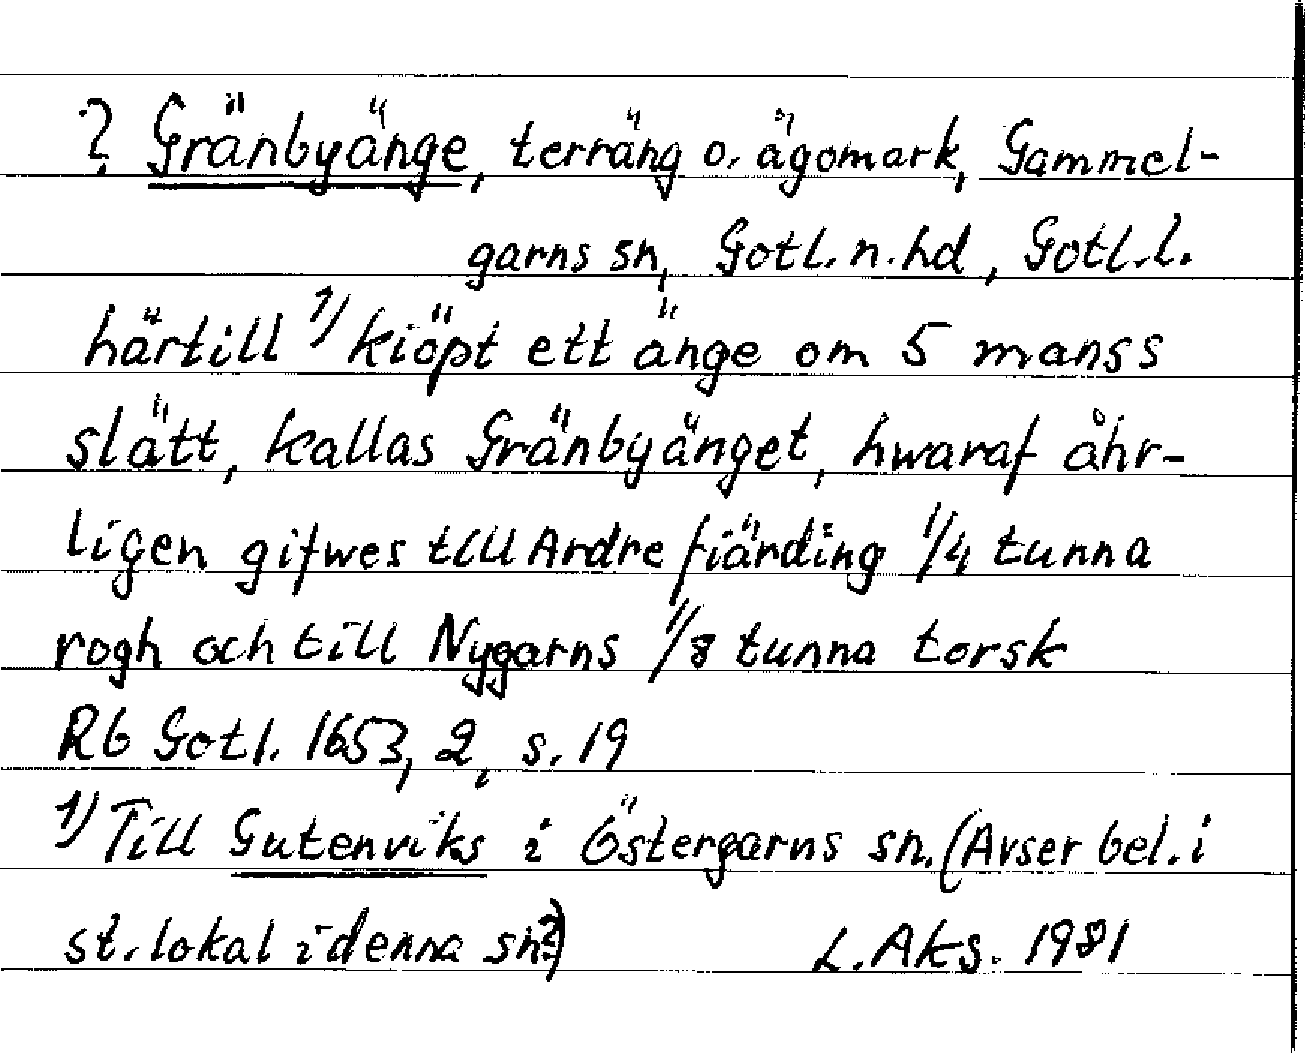 ? Gränbyänge, terräng o. ägomark, Gammel-
garns sn, Gotl. n. hd, Gotl. l.
härtill 1) kiöpt ett änge om 5 manss
slätt, kallas Gränbyänget, hwaraf åhr-
ligen gifwes till Ardre fiärding 1/4 tunna
rogh och till Nygarns 1/8 tunna torsk
Rb Gotl. 1653, 2, s. 19
1) Till Gutenviks i Östergarns sn. (Avser bel. i
st. lokal i denna sn?)
L. Aks. 1981